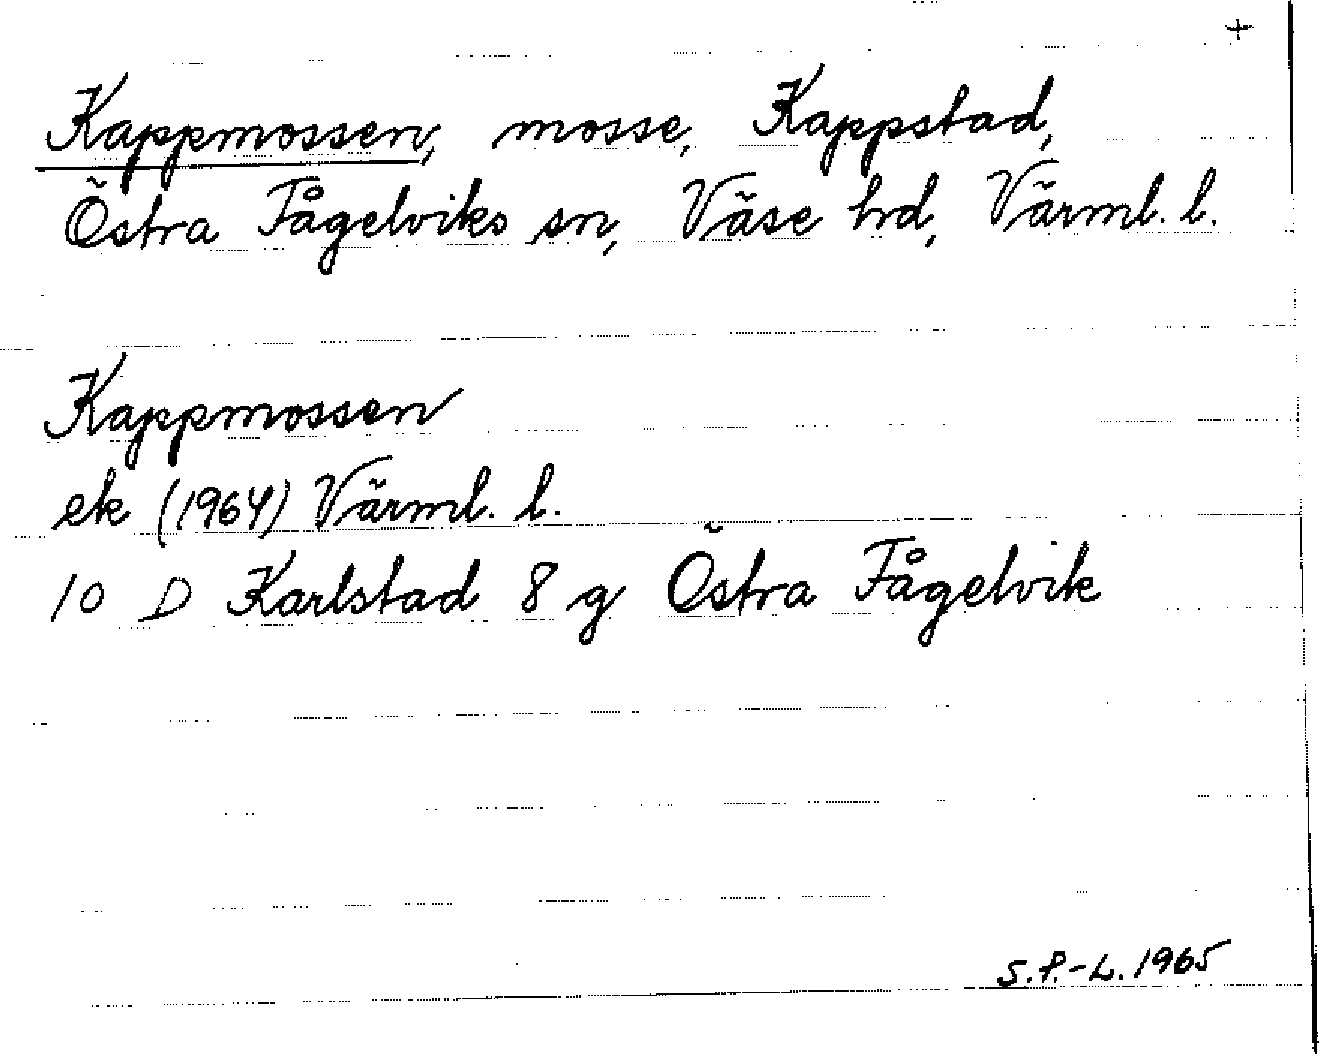 +
Kappmossen, mosse, Kappstad,
Östra Fågelviks sn, Väse hd, Värml. l.
Kappmossen
ek (1964) Värml. l.
10 D Karlstad 8 g Östra Fågelvik
S.P.-L. 1965